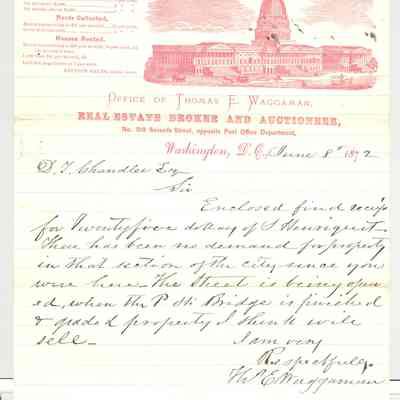 Rents Collected.
Houses Rented.
OFFICE OF THOMAS E. WAGGAMAN,
REAL ESTATE BROKER AND AUCTIONEER,
No. 519 Seventh Street, opposite Post Office Department,
Washington, D. C., June 8" 1872
D. T. Chandler Esq
Sir
Enclosed find recip
for Twentyfive dolls of S Henriquet
There has been no demand for property
in that section of the city since you
were here. The Street is being open
ed, when the P St Bridge is finished
& graded property I think will
sell-
I am very
Respectfully
Th. E Waggaman